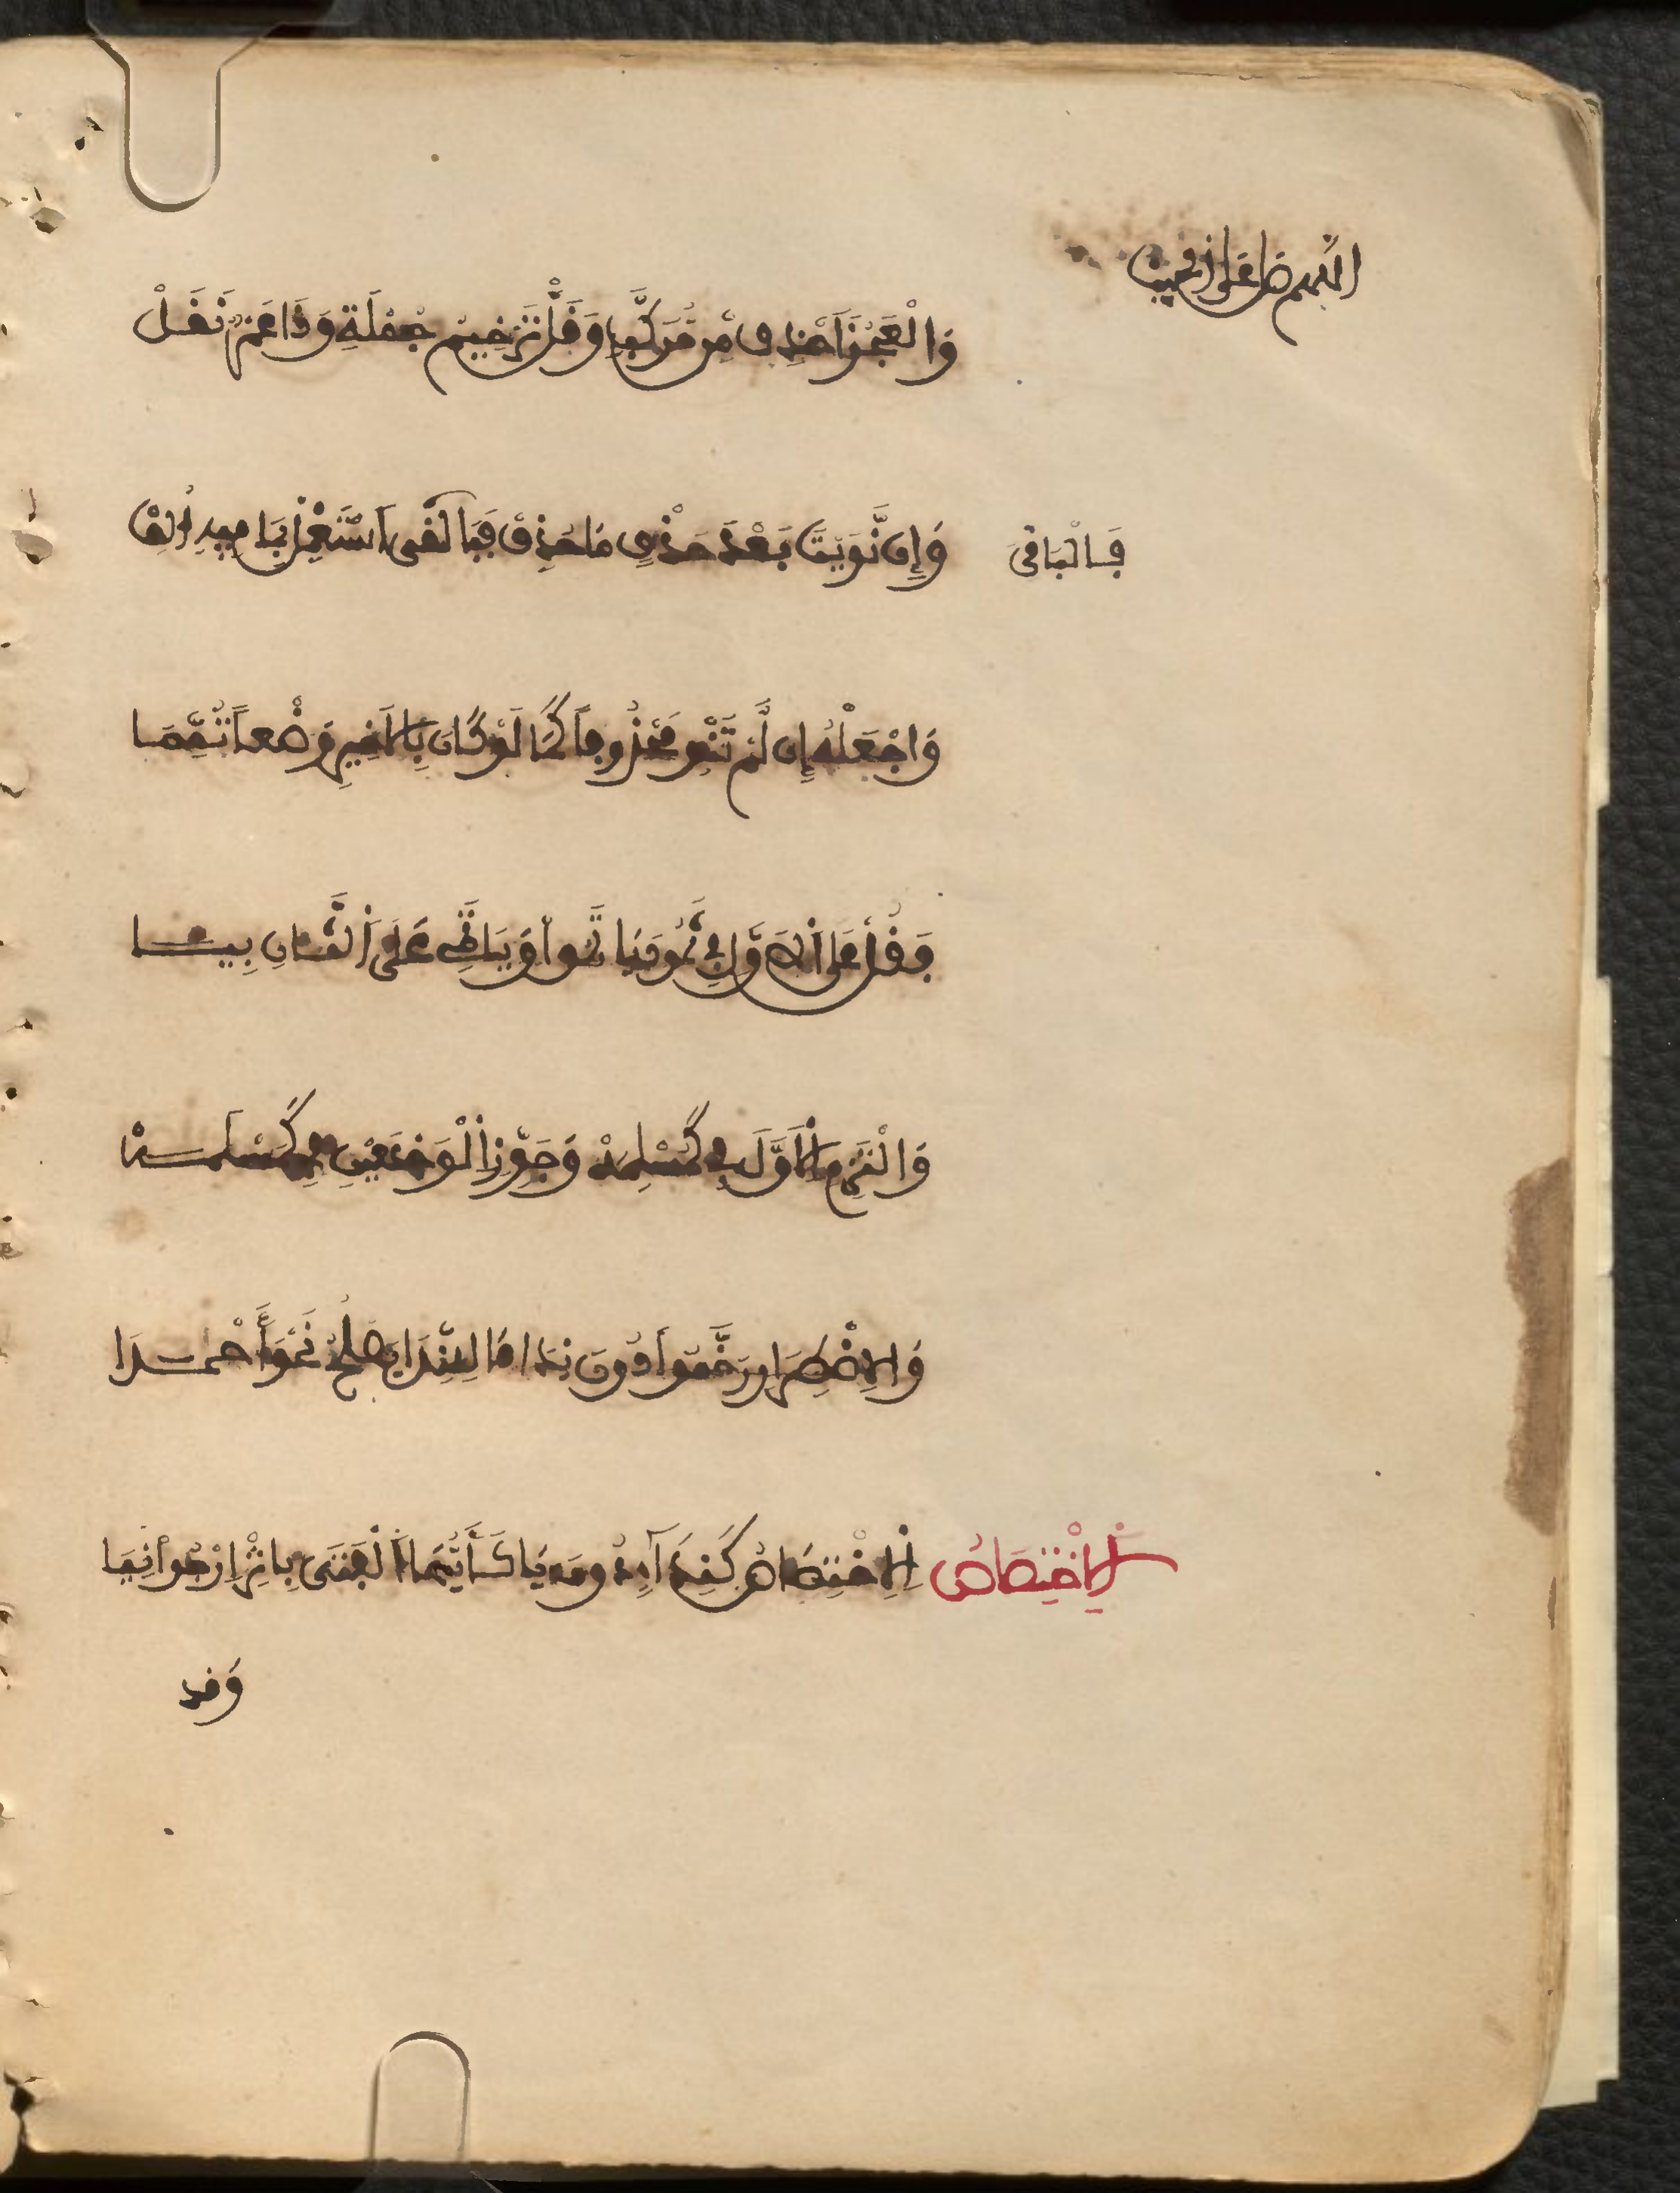 اللهم صل على
وَالْعَجُزَ احْذِفْ مِن مُّرَكَّبٍ وَقَلّْ تَرْخِيمُ جُمْلَةٍ وَذَا عَمْرٌو نَقَلْ
وَإِن نَّوَيْتَ بَعْدَ حَذْفٍ مَا حُذِفْ فَبَالْفَى اسْتَعْمِلْ بِمَا فِيهِ أُلِفْ
فَالْبَاقِيَ
وَاجْعَلْهُ إِن لَّمْ تَنْوِ مَحْذُوفاً كَمَا لَوْ كَانَ بِالَاخِيرِ وَضْعاً تُمِّمَا
فَقُلْ عَلَى الَاوَّلِ فِي ثَمُودَ يَا ثَمُو وَيَا ثَمِي عَلَى الثَّانِ بِيَا
وَالْتَزِمِ الَاوَّلَ فِي كَمُسْلِمَهْ وَجَوِّزِ الْوَجْهَيْنِ فِي كَمَسْلَمَهْ
وَلِاضْطِرَارٍ رَخَّمُوا دُونَ نِدَا مَا لِلنِّدَا يَصْلُحُ نَحْوُ أَحْمَدَا
الِاخْتِصَاصُ
الِاخْتِصَاصُ كَنِدَاءٍ دُونَ يَا كَأَيُّهَا الْفَتَى بِإِثْرِ ارْجُونِيَا
وَقد